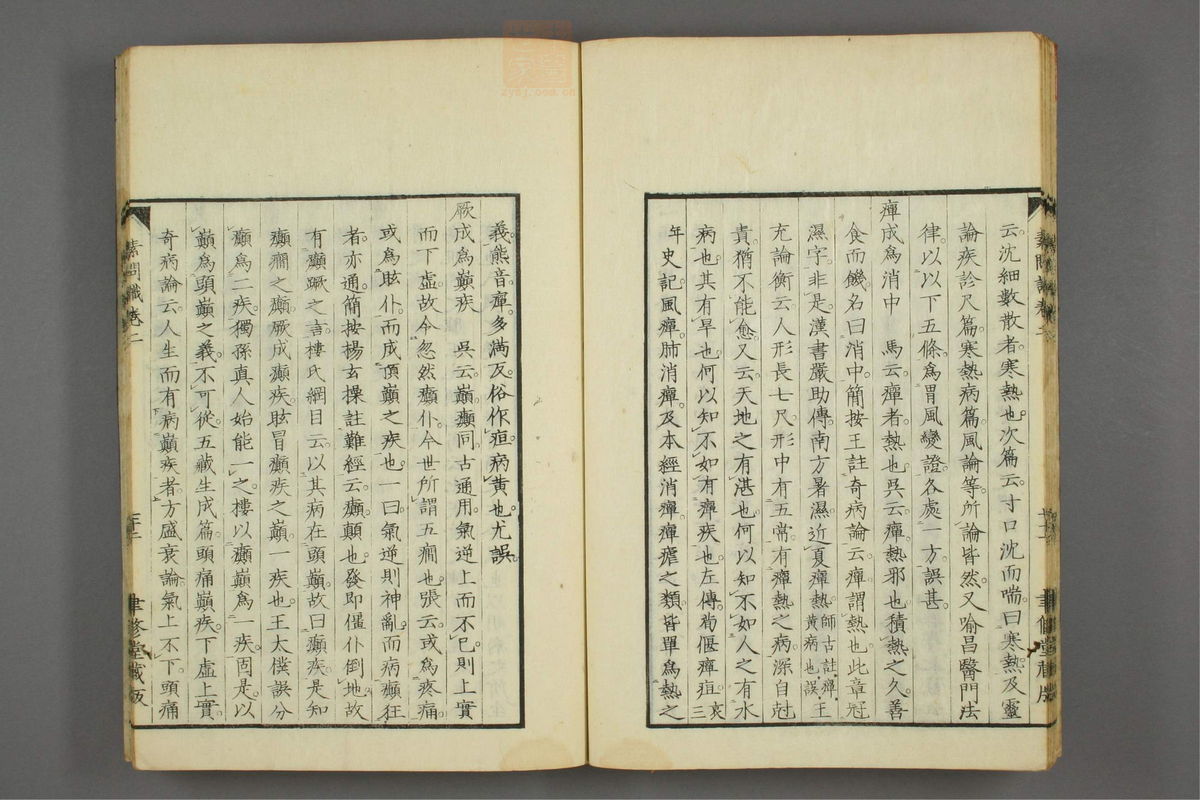 云沈細數散者寒熱也次篇云寸口沈而喘曰寒熱及靈
論疾診尺篇寒熱病篇風論等所論皆然又喻昌醫門法
律以以下五條爲胃風變證各處一方誤甚
癉成爲消中　馬云癉者熱也吳云癉熱邪也積熱之久善
食而饑名曰消中簡按王註奇病論云癉謂熱也此章冠
濕字非是漢書嚴助傳南方暑濕近夏癉熱師古註癉黃病也誤王
充論衡云人形長七尺形中有五常有癉熱之病深自尅
責猶不能愈又云天地之有湛也何以知不如人之有水
病也其有旱也何以知不如有癉疾也左傳荀偃癉疽哀三
年史記風癉肺消癉及本經消癉癉瘧之類皆單爲熱之
素問識卷二
聿修堂藏版
義熊音癉多滿反俗作疸病黃也尤誤
厥成爲巔疾　吳云巔癲同古通用氣逆上而不已則上實
而下虛故令忽然癲仆今世所謂五癇也張云或爲疼痛
或爲眩仆而成頂巔之疾也一曰氣逆則神亂而病癲狂
者亦通簡按楊玄操註難經云癲顛也發即僵仆倒地故
有癲蹶之言樓氏綱目云以其病在頭巔故曰癲疾是知
癲癇之癲厥成癲疾眩冒癲疾之巔一疾也王太僕誤分
癲爲二疾獨孫眞人始能一之樓以癲巔爲一疾固是以
巔爲頭巔之義不可從五藏生成篇頭痛巔疾下虛上實
奇病論云人生而有病巔疾者方盛衰論氣上不下頭痛
素問識卷二
聿修堂藏版
zysj.com.cn